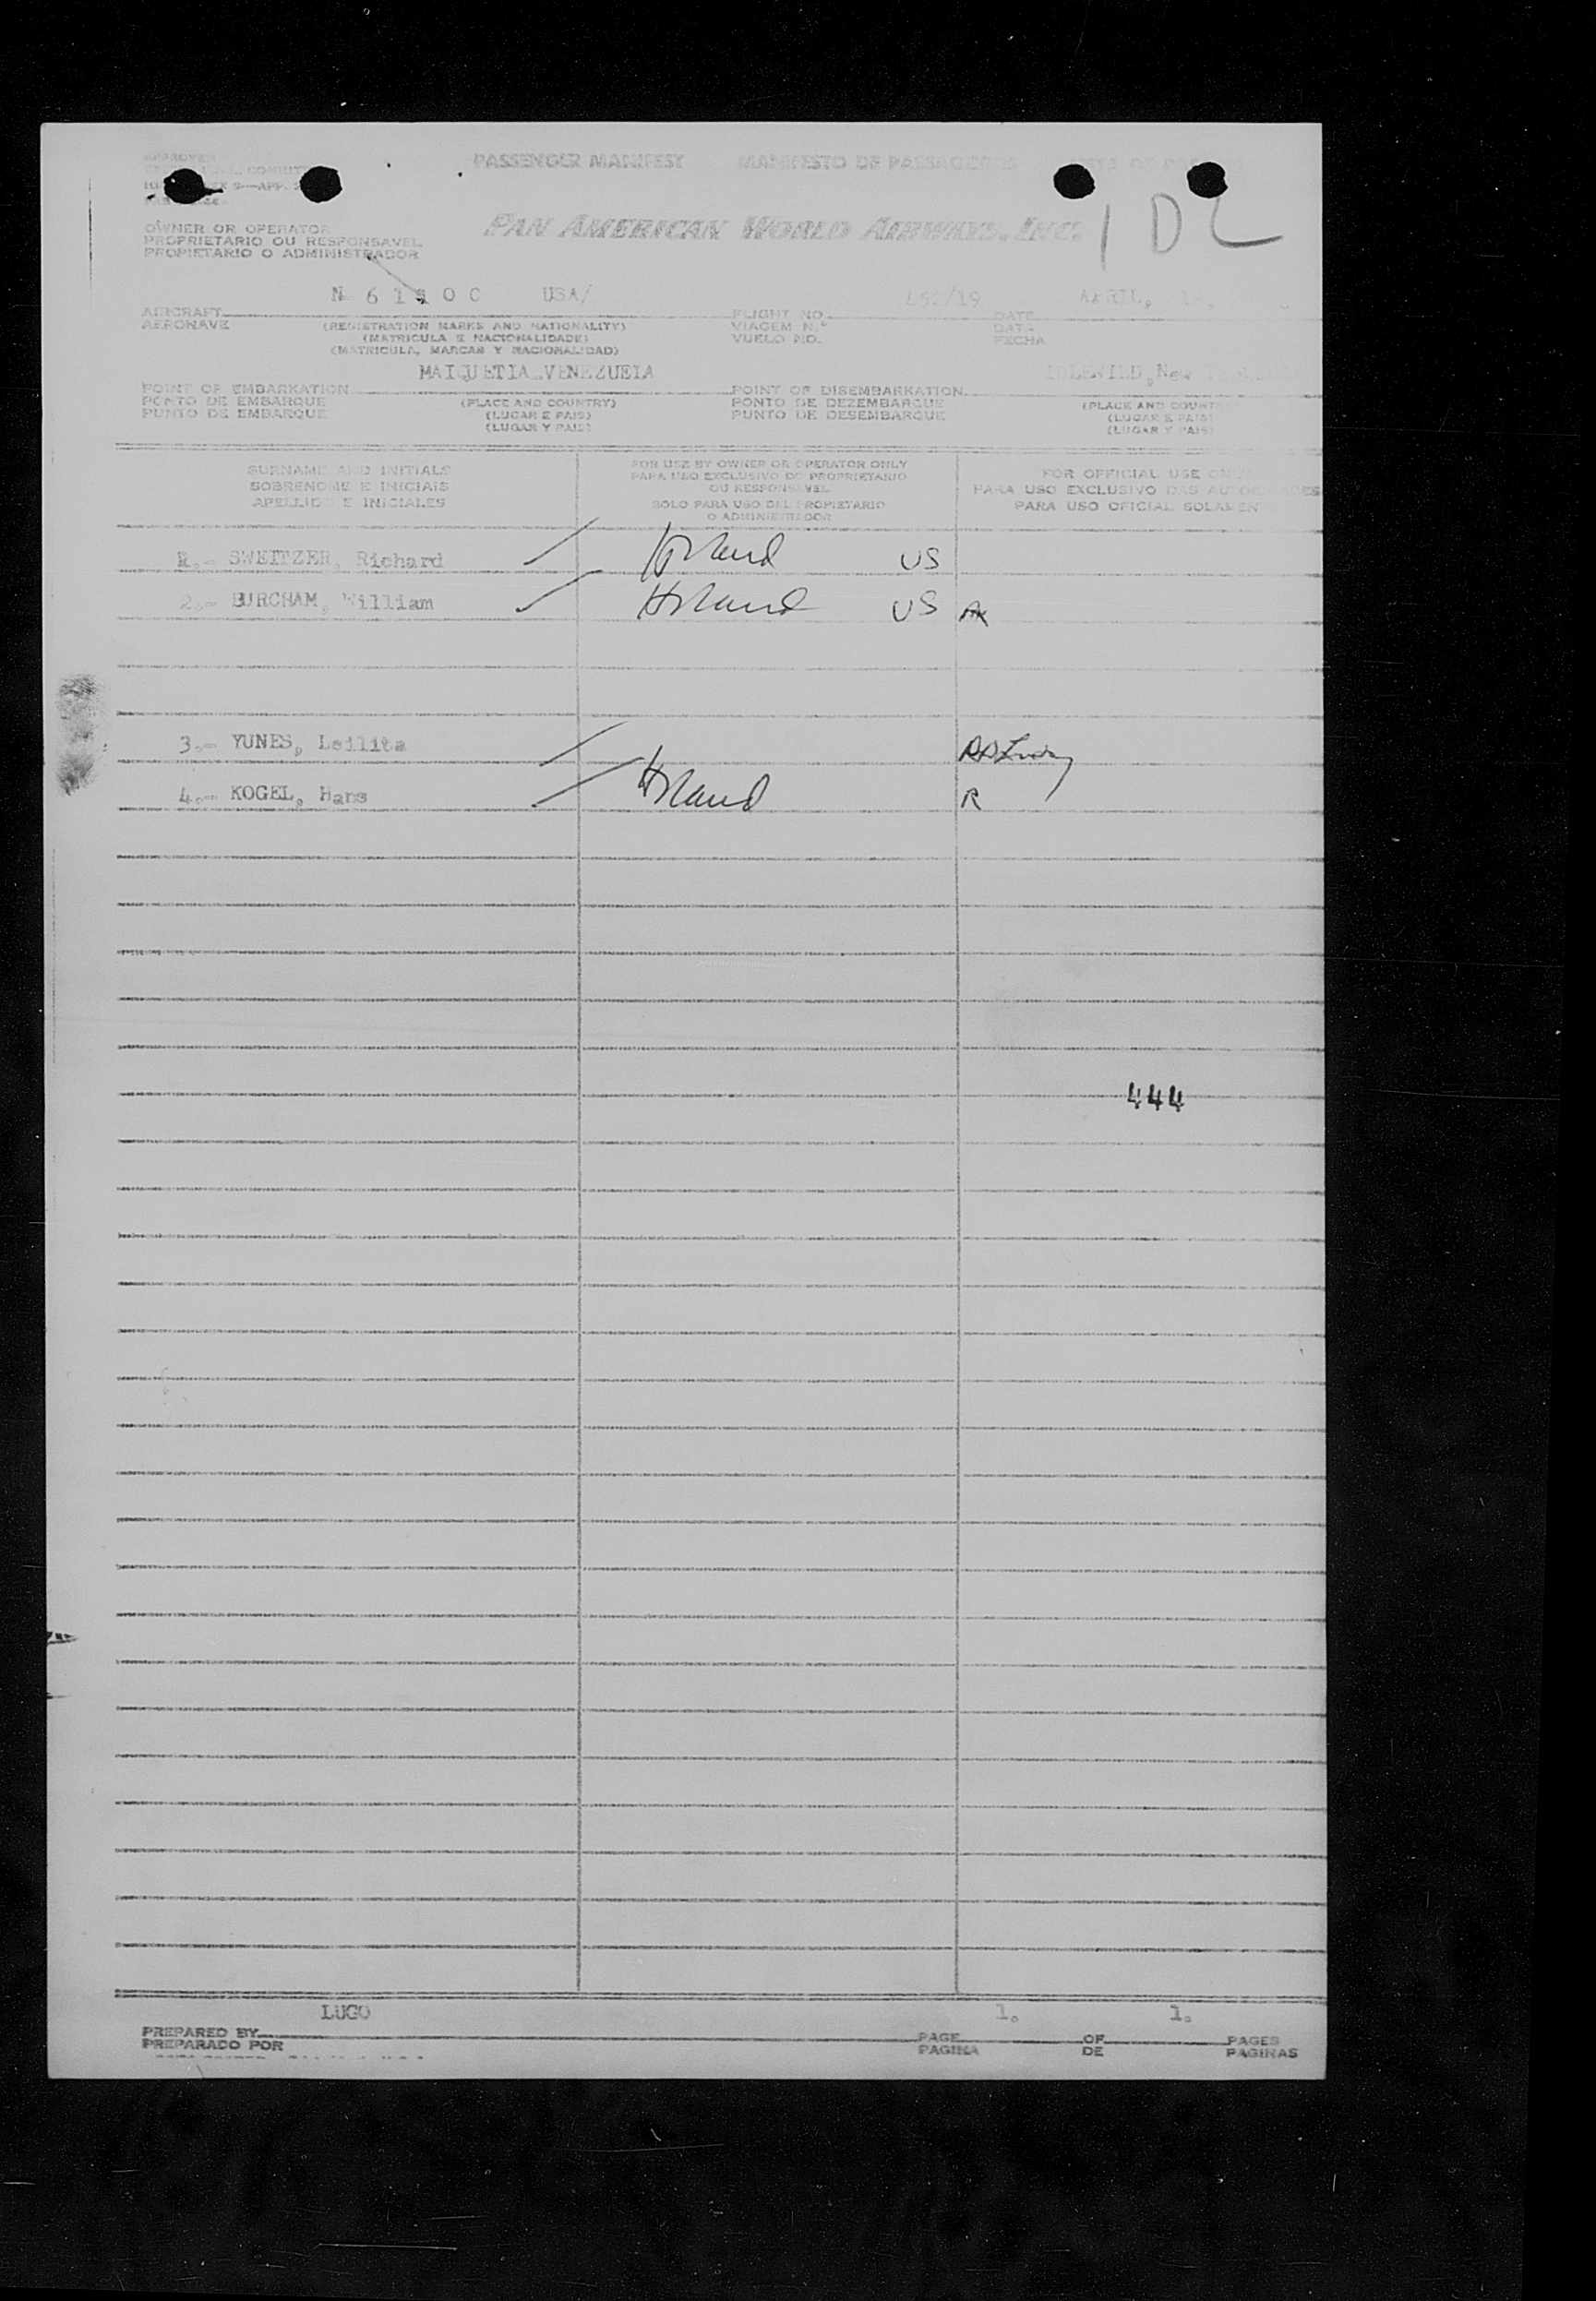 PASSENGER MANIFEST MANIFESTO DE PASSAGEIROS
APPROVED
PAN AMERICAN WORLD AIRWAYS, INC. 1 DL
OWNER OR OPERATOR
PROPRIETARIO OU RESPONSAVEL
PROPIETARIO O ADMINISTRADOR
USA/ APRIL,
AIRCRAFT FLIGHT NO. DATE
AERONAVE (REGISTRATION MARKS AND NATIONALITY) VIAGEM N.º DATA
(MATRICULA E NACIONALIDADE) VUELO NO. FECHA
(MATRICULA, MARCAS Y NACIONALIDAD)
MAIQUETIA VENEZUELA IDLEWILD, New
POINT OF EMBARKATION POINT OF DISEMBARKATION
PONTO DE EMBARQUE (PLACE AND COUNTRY) PONTO DE DEZEMBARQUE (PLACE AND COUNT
PUNTO DE EMBARQUE (LUGAR E PAIS) PUNTO DE DESEMBARQUE (LUGAR E PAIS)
(LUGAR Y PAIS) (LUGAR Y PAIS)
SURNAME AND INITIALS FOR USE BY OWNER OR OPERATOR ONLY FOR OFFICIAL USE ONLY
SOBRENOME E INICIAIS PARA USO EXCLUSIVO DO PROPRIETARIO PARA USO EXCLUSIVO DAS
OU RESPONSAVEL
APELLIDO E INICIALES SOLO PARA USO DEL PROPIETARIO PARA USO OFICIAL SOLAMEN
O ADMINISTRADOR
1.- SWEITZER, Richard US
2.- BURCHAM, William US
3.- YUNES, Leilita
4.- KOGEL, Hans R
444
LUGO 1. 1.
PREPARED BY PAGE OF PAGES
PREPARADO POR PAGINA DE PAGINAS